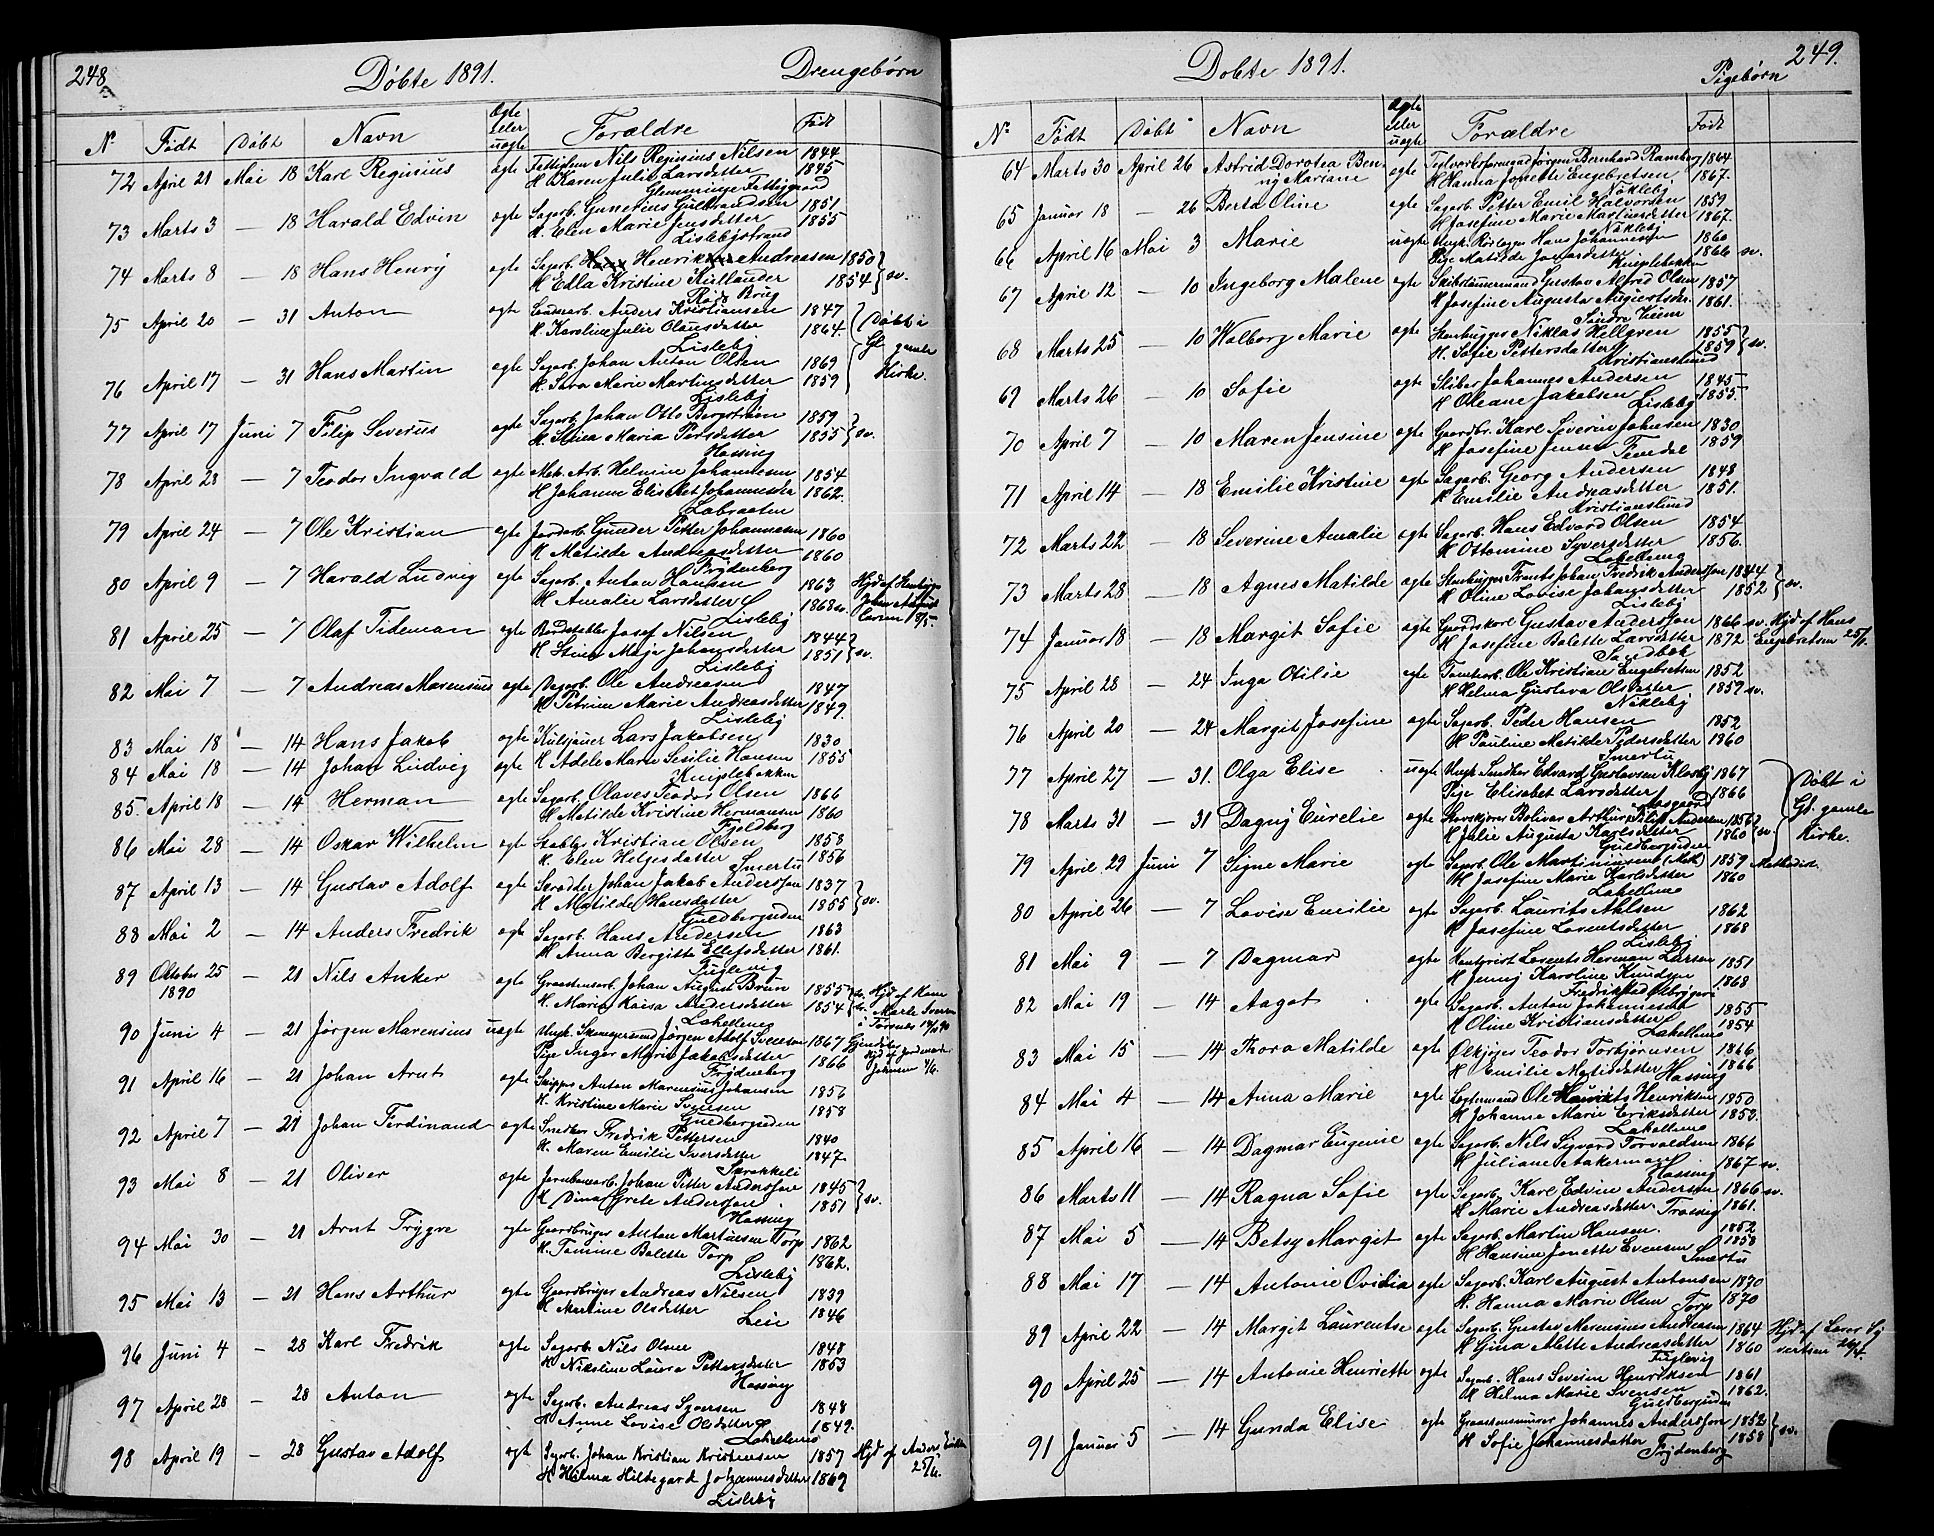 248
Døbte 1891.
Drengebørn
No Født Døbt Navn Ægte eller uægte Forældre Født
72 April 21 Mai 18 Karl Reginius ægte Fattiglem Nils Reginius Nilsen 1844
H. Karen Julie Larsdatter 1845
Glemminge Fattiggaard
73 Marts 3 — 18 Harald Edvin ægte Sagarb. Gunerius Gulbrandsen 1851
H. Elen Marie Jensdatter 1855
Lislebystrand
74 Marts 8 — 18 Hans Henry ægte Sagarb. Henrik Andreasen 1850
H. Edla Kristine Kullander 1854 } sv.
Røds Brug
75 April 20 — 31 Anton ægte Anders Kristiansen 1847
H. Karoline Julie Olausdatter 1864 Døbt i
Lisleby Gl. gamle
76 April 17 — 31 Hans Martin ægte Sagarb. Johan Anton Olsen 1869 Kirke.
H. Sara Marie Martinsdatter 1859
Lisleby
77 April 17 Juni 7 Filip Severus ægte Sagarb. Johan Otto Bergstrøm 1859
H. Stina Maria Persdatter 1855 } sv.
Hassing
78 April 23 — 7 Teodor Ingvald ægte Mek. Arb. Helmine Johannesen 1854
H. Johanne Elisabet Johannesdr 1862.
Labraaten
79 April 24 — 7 Ole Kristian ægte Jordarb. Gunder Petter Johannesen 1860
H. Matilde Andreasdatter 1860
Frydenberg
80 April 9 — 7 Harald Ludvig ægte Sagarb. Anton Hansen 1863
H. Amalie Larsdatter 1868 sv.
Lisleby
81 April 25 — 7 Olaf Tideman ægte Bordstabler Josef Nilsen 1844
H. Stina Maja Johansdatter 1851 } sv.
Lisleby
82 Mai 7 — 7 Andreas Marensius ægte Dagarb. Ole Andreasen 1847
H. Petrine Marie Andreasdatter 1849.
Lisleby
83 Mai 18 — 14 Hans Jakob ægte Kuljaner Lars Jakobsen 1830
84 Mai 18 — 14 Johan Ludvig ægte H. Adele Marie Sesilie Hansen 1855
Kniplebakken
85 April 18 — 14 Herman ægte Sagarb. Olaves Teodor Olsen 1866
H. Matilde Kristine Hermansen 1860
Fjeldberg
86 Mai 28 — 14 Oskar Wilhelm ægte Stabler Kristian Olsen 1858
H. Elen Helgesdatter 1856
Smertu
87 April 13 — 14 Gustav Adolf ægte Skrædder Johan Jakob Andersson 1837
H. Matilde Hansdatter 1855 } sv.
Guldbergsiden
88 Mai 2 — 14 Anders Fredrik ægte Sagarb. Hans Andersen 1863
H. Anna Bergitte Ellefsdatter 1861.
Fuglevig
89 Oktober 25 — 21 Nils Anker ægte Graastensarb. Johan August Brun 1855
1890 H. Maria Kaisa Andersdatter 1854
Lahellene
90 Juni 4 — 21 Jørgen Marensius uægte Ungk. Jørgen Adolf 1867
Pige Inger Marie Jakobsdatter 1866
Frydenberg
91 April 16 — 21 Johan Arnt ægte Skipper Anton Marensius Johansen 1856
H. Kristine Marie Svensen 1858
Guldbergsiden
92 April 7 — 21 Johan Ferdinand ægte Snedker Fredrik Pettersen 1840
H. Maren Emilie Iversdatter 1847
93 Mai 8 — 21 Oliver ægte Jernbanearb. Johan Petter Andersson 1845
H. Dina Grete Andersson 1851 } sv.
Hassing
94 Mai 30 — 21 Arnt Trygve ægte Gaardbruger Anton Martinsen Torp 1862
H. Tomine Bolette Torp 1862.
Lisleby
95 Mai 13 — 21 Hans Arthur ægte Gaardbruger Andreas Nilsen 1839
H. Martine Olsdatter 1846
Leie
96 Juni 4 — 28 Karl Fredrik ægte Sagarb. Nils Olsen 1848
H. Nikoline Laura Pettersdatter 1853
Hassing
97 April 28 — 28 Anton ægte Sagarb. Andreas Syversen 1848
H. Anne Lovise Olsdatter 1849.
Lahellene
98 April 19 — 28 Gustav Adolf ægte Sagarb. Johan Kristian Kristensen 1857 Hjd af Anders
H. Hilma Hildegard Johannesdatter 1869 25/4.
Lisleby
249.
Døbte 1891.
Pigebørn
No Født Døbt Navn Ægte eller uægte Forældre Født
64 Marts 30 April 26 Astrid Dorotea Ben- ægte Teglverksformand Jørgen Bernhard Ramberg 1864
ny Mariane H. Hanna Jonette Engebretsen 1867.
Nøkleby
65 Januar 18 — 26 Berta Oline ægte Sagarb. Petter Emil Halvorsen 1859
H. Josefine Marie Martinsdatter 1867.
Nøkleby
66 April 16 Mai 3 Marie uægte Ungk. Rørlægger Hans Johannesen 1860
Pige Matilde 1866 sv.
Kniplebakken
67 April 12 — 10 Ingeborg Malene ægte Skibstømmermand Gustav Alfred Olsen 1857
H. Josefine Augusta Augustsdr. 1861.
Søndre Veum
68 Marts 25 — 10 Walborg Marie ægte Stenhugger Niklas Hellgren 1855
H. Sofie Pettersdatter 1859 } sv.
Kristianslund
69 Marts 26 — 10 Sofie ægte Sliber Johannes Andersen 1845
H. Oleane Jakobsen 1855
Lisleby
70 April 7 — 10 Maren Jensine ægte Gaardbr. Karl Severin Johnsen 1830
H. Josefine Jensen 1859
71 April 14 — 18 Emilie Kristine ægte Sagarb. Georg Andersen 1848
H. Emilie Andreasdatter 1851.
Kristianslund
72 Marts 22 — 18 Severine Amalie ægte Sagarb. Hans Edvard Olsen 1854
H. Ottomine Syversdatter 1856.
Lahellene
73 Marts 28 — 18 Agnes Matilde ægte Stenhugger Frants Johan Fredrik Andersson 1844
H. Oline Lovise Johansdatter 1852 } sv.
Lisleby
74 Januar 18 — 18 Margit Sofie ægte Gaardskarl Gustav Andersson 1866 sv. Hjd af Hans
H. Josefine Bolette Larsdatter 1872 Engebretsen 25/1.
Sandbæk
75 April 28 — 24 Inga Otilie ægte Tomtearb. Ole Kristian Engebretsen 1852
H. Helma Gustava Olsdatter 1859 sv.
Nøkleby
76 April 20 — 24 Margit Josefine ægte Sagarb. Peder Hansen 1852
H. Pauline Matilde Pedersdatter 1860
Smertu
77 April 27 — 31. Olga Elise uægte Ungk. Snedker Edvard Gustavsen 1867 Døbt i
Pige Elisabet Larsdatter 1866 Gl. gamle
78 Marts 31 — 31 Dagny Eurelie ægte Bolivar Arthur Filip Andersen 1856 Kirke.
H. Julie Augusta Karlsdatter 1860 } sv.
Guldbergsiden
79 April 29 Juni 7 Signe Marie ægte Sagarb. Ole Martininsen (Met.) 1859 Methodist.
H. Josefine Marie Karlsdatter 1860
Lahellene
80 April 26 — 7 Lovise Emilie ægte Sagarb. Laurits Nilsen 1862
H. Josefine Lorentsdatter 1868
Lisleby
81 Mai 9 — 7 Dagmar ægte Kontorist Lorents Herman Larsen 1851
H. Jenny Karoline Knudsen 1868
82 Mai 19 — 14 Aagot ægte Sagarb. Anton Johannesen 1855
H. Oline Kristiansdatter 1854
Lahellene
83 Mai 15 — 14 Thora Matilde ægte Teodor Torbjørnsen 1866
H. Emilie Matisdatter 1866
Hassing
84 Mai 4 — 14 Anna Marie ægte Ole Henriksen 1850
H. Johanne Marie Eriksdatter 1853.
Lahellene
85 April 16 — 14 Dagmar Eugenie ægte Sagarb. Nils Sigvard Torvaldsen 1866
H. Juliane Aakerman 1867 sv.
Hassing
86 Marts 11 — 14 Ragna Sofie ægte Sagarb. Karl Edvin Andersen 1866 sv.
H. Marie Andreasdatter 1861.
Trosvig
87 Mai 5 — 14 Betsy Margit ægte Sagarb. Martin Hansen 1852
H. Hansine Jonette Evensen 1858
Smertu
88 Mai 17 — 14 Antonie Ovidia ægte Sagarb. Karl August Antonsen 1870
H. Hanna Marie Olsen 1870
Torp
89 April 22 — 14 Margit Laurentse ægte Sagarb. Gustav Marensius Andreasen 1864
H. Gina Alette Andreasdatter 1860
Fuglevig
90 April 25 — 14 Antonie Henriette ægte Sagarb. Hans Severin Henriksen 1861
H. Helma Marie Svensen 1862.
Guldbergsiden
91 Januar 5 — 14 Gunda Elise ægte Johannes Andersson 1852
H. Sofie Johannesdatter 1858 } sv.
Frydenberg